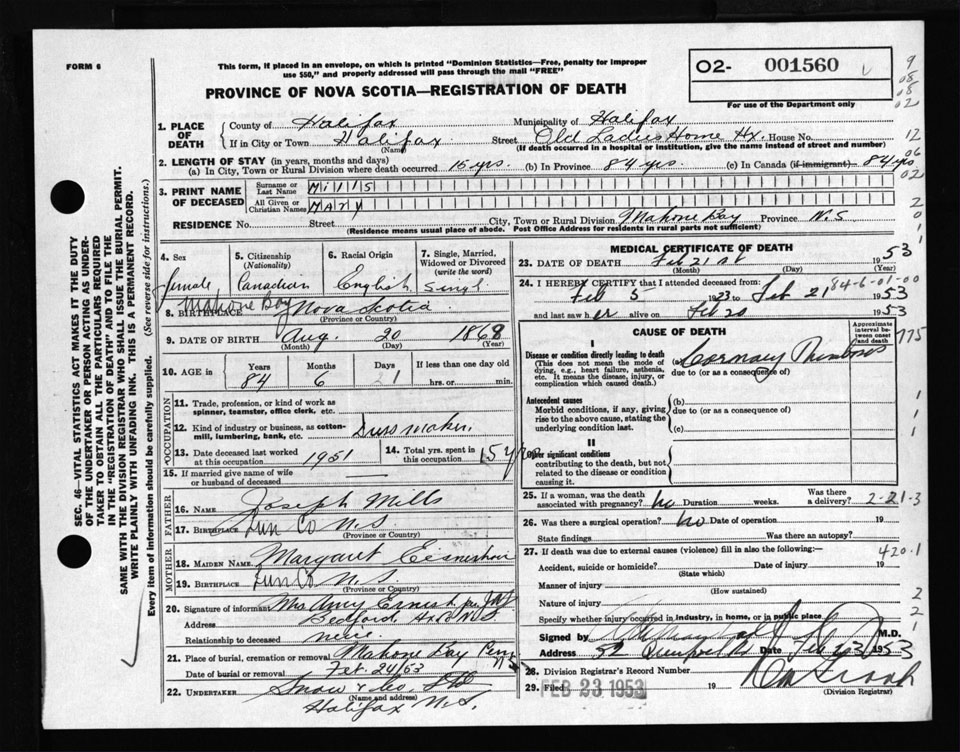 FORM 6
This form, if placed in an envelope, on which is printed "Dominion Statistics—Free, penalty for improper
use $50," and properly addressed will pass through the mail "FREE"
O2- 001560
For use of the Department only
PROVINCE OF NOVA SCOTIA—REGISTRATION OF DEATH
1. PLACE OF DEATH
County of Halifax Municipality of Halifax
If in City or Town Halifax Street Old Ladies Home Hx. House No.
(Name) (If death occurred in a hospital or institution, give the name instead of street and number)
2. LENGTH OF STAY (in years, months and days)
(a) In City, Town or Rural Division where death occurred 15 yrs. (b) In Province 84 yrs. (c) In Canada (if immigrant) 84 yrs
3. PRINT NAME OF DECEASED
Surname or Last Name Mills
All Given or Christian Names Mary
RESIDENCE No. Street City, Town or Rural Division Mahone Bay Province N.S
(Residence means usual place of abode. Post Office Address for residents in rural parts not sufficient)
4. Sex female
5. Citizenship (Nationality) Canadian
6. Racial Origin English
7. Single, Married, Widowed or Divorced (write the word) Singl.
8. BIRTHPLACE Mahone Bay Nova Scotia
(Province or Country)
9. DATE OF BIRTH Aug. 20 1868
(Month) (Day) (Year)
10. AGE in Years Months Days If less than one day
84 6 1 hrs. or min.
OCCUPATION
11. Trade, profession, or kind of work as spinner, teamster, office clerk, etc.
12. Kind of industry or business, as cotton-mill, lumbering, bank, etc. Dress maker.
13. Date deceased last worked at this occupation 1951
14. Total yrs. spent in this occupation 15 yr
15. If married give name of wife or husband of deceased
FATHER
16. Name Joseph Mills
17. Birthplace Lun Co N.S.
(Province or Country)
MOTHER
18. Maiden Name Margaret
19. Birthplace Lun Co N.S.
(Province or Country)
20. Signature of informant Mrs Amy Ernst
Address Bedford, N.S
Relationship to deceased niece.
21. Place of burial, cremation or removal Mahone Bay
Date of burial or removal Feb 24/53
22. UNDERTAKER Snow & Co.
(Name and address)
Halifax N.S.
MEDICAL CERTIFICATE OF DEATH
23. DATE OF DEATH Feb 21 1953
(Month) (Day) (Year)
24. I HEREBY CERTIFY that I attended deceased from:
84-6-01-00
Feb 5 1923 to Feb 21 1953
and last saw her alive on Feb 20 1953
CAUSE OF DEATH
Approximate interval between onset and death
775
I
Disease or condition directly leading to death
(This does not mean the mode of dying, e.g., heart failure, asthenia, etc. It means the disease, injury, or complication which caused death.)
(a) Coronary Thrombosis
due to (or as a consequence of)
Antecedent causes
Morbid conditions, if any, giving rise to the above cause, stating the underlying condition last.
(b)
due to (or as a consequence of)
(c)
II
Other significant conditions
contributing to the death, but not related to the disease or condition causing it.
25. If a woman, was the death associated with pregnancy? No Duration weeks. Was there a delivery?
2-21-3
26. Was there a surgical operation? No Date of operation 19
State findings Was there an autopsy?
27. If death was due to external causes (violence) fill in also the following:—
420.1
Accident, suicide or homicide? Date of injury 19
(State which)
Manner of injury
(How sustained)
Nature of injury
Specify whether injury occurred in industry, in home, or in public place
Signed by M.D.
Address 52 Date Feb 1953
28. Division Registrar's Record Number
29. Filed FEB 23 1953 19
(Division Registrar)
SEC. 46—VITAL STATISTICS ACT MAKES IT THE DUTY
OF THE UNDERTAKER OR PERSON ACTING AS UNDER-
TAKER TO OBTAIN ALL THE PARTICULARS REQUIRED
IN THE "REGISTRATION OF DEATH" AND TO FILE THE
SAME WITH THE DIVISION REGISTRAR WHO SHALL ISSUE THE BURIAL PERMIT.
WRITE PLAINLY WITH UNFADING INK. THIS IS A PERMANENT RECORD.
Every item of information should be carefully supplied. (See reverse side for instructions.)